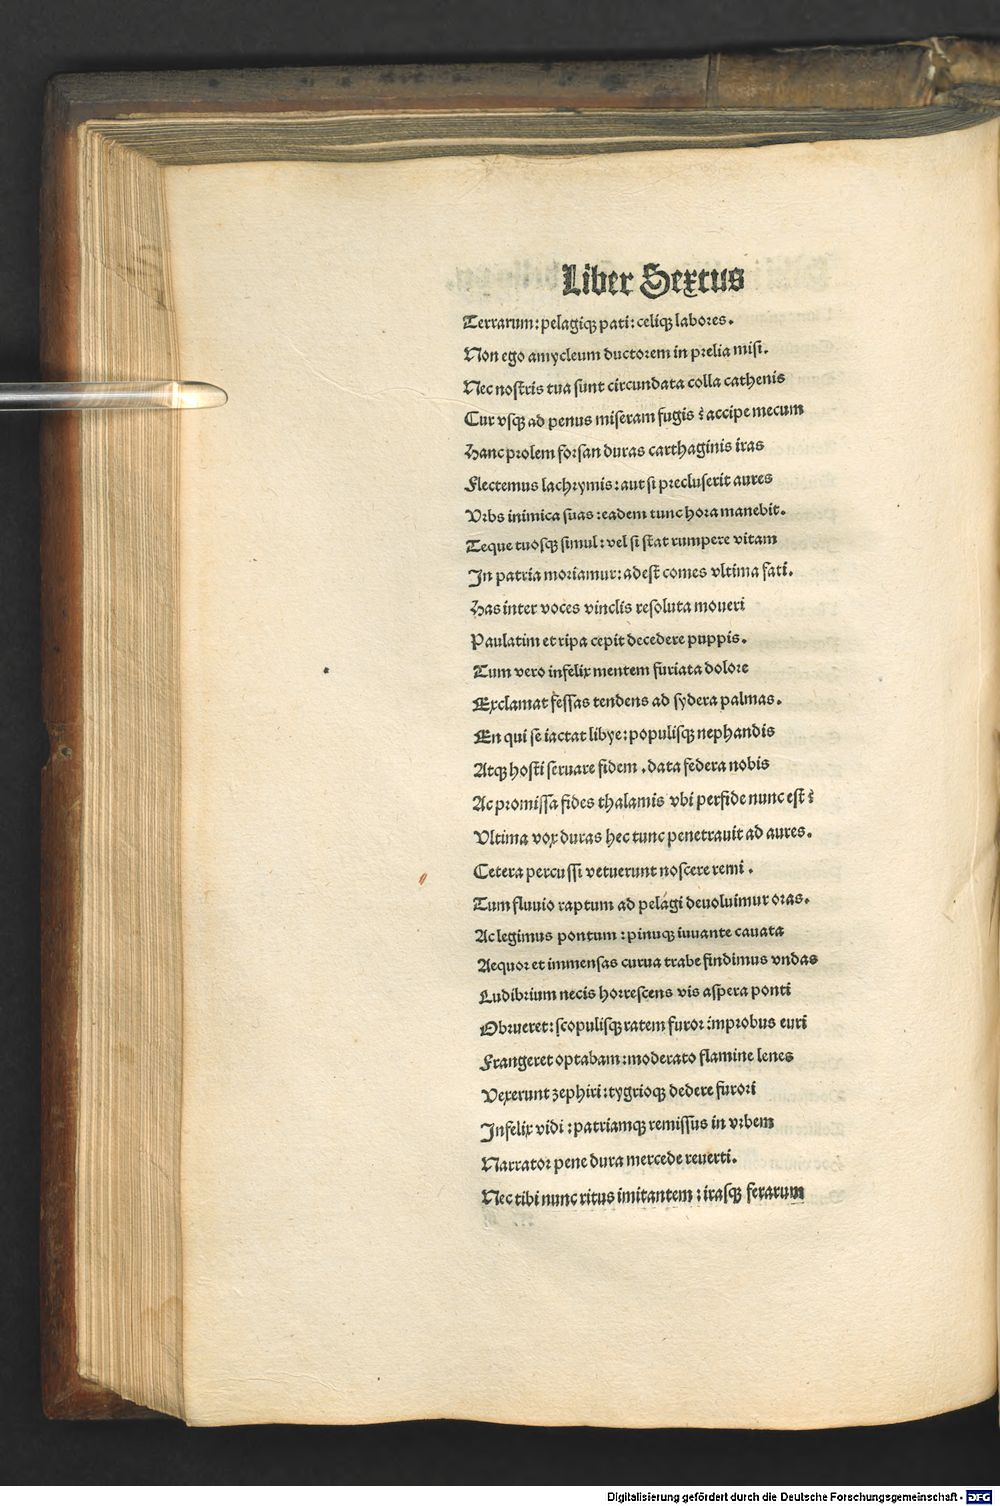 Liber Sextus
Terrarum: pelagiqꝫ pati: celiqꝫ labores.
Non ego amycleum ductorem in prelia misi.
Nec nostris tua sunt circundata colla cathenis
Cur vsqꝫ ad penus miseram fugis? accipe mecum
Hanc prolem forsan duras carthaginis iras
Flectemus lachrymis: aut si precluserit aures
Vrbs inimica suas: eadem tunc hora manebit.
Teque tuosqꝫ simul: vel si stat rumpere vitam
In patria moriamur: adest comes vltima fati.
Has inter voces vinclis resoluta moueri
Paulatim et ripa cepit decedere puppis.
Tum vero infelix mentem furiata dolore
Exclamat fessas tendens ad sydera palmas.
En qui se iactat libye: populisqꝫ nephandis
Atqꝫ hosti seruare fidem. data federa nobis
Ac promissa fides thalamis vbi perfide nunc est?
Vltima vox duras hec tunc penetrauit ad aures.
Cetera percussi vetuerunt noscere remi.
Tum fluuio raptum ad pelagi deuoluimur oras.
Ac legimus pontum: pinuqꝫ iuuante cauata
Aequor et immensas curua trabe findimus vndas
Ludibrium necis horrescens vis aspera ponti
Obrueret: scopulisqꝫ ratem furor improbus euri
Frangeret optabam: moderato flamine lenes
Vexerunt zephiri: tygrioqꝫ dedere furori
Infelix vidi: patriamqꝫ remissus in vrbem
Narrator pene dura mercede reuerti.
Nec tibi nunc ritus imitantem: irasqꝫ ferarum
Digitalisierung gefördert durch die Deutsche Forschungsgemeinschaft - DFG